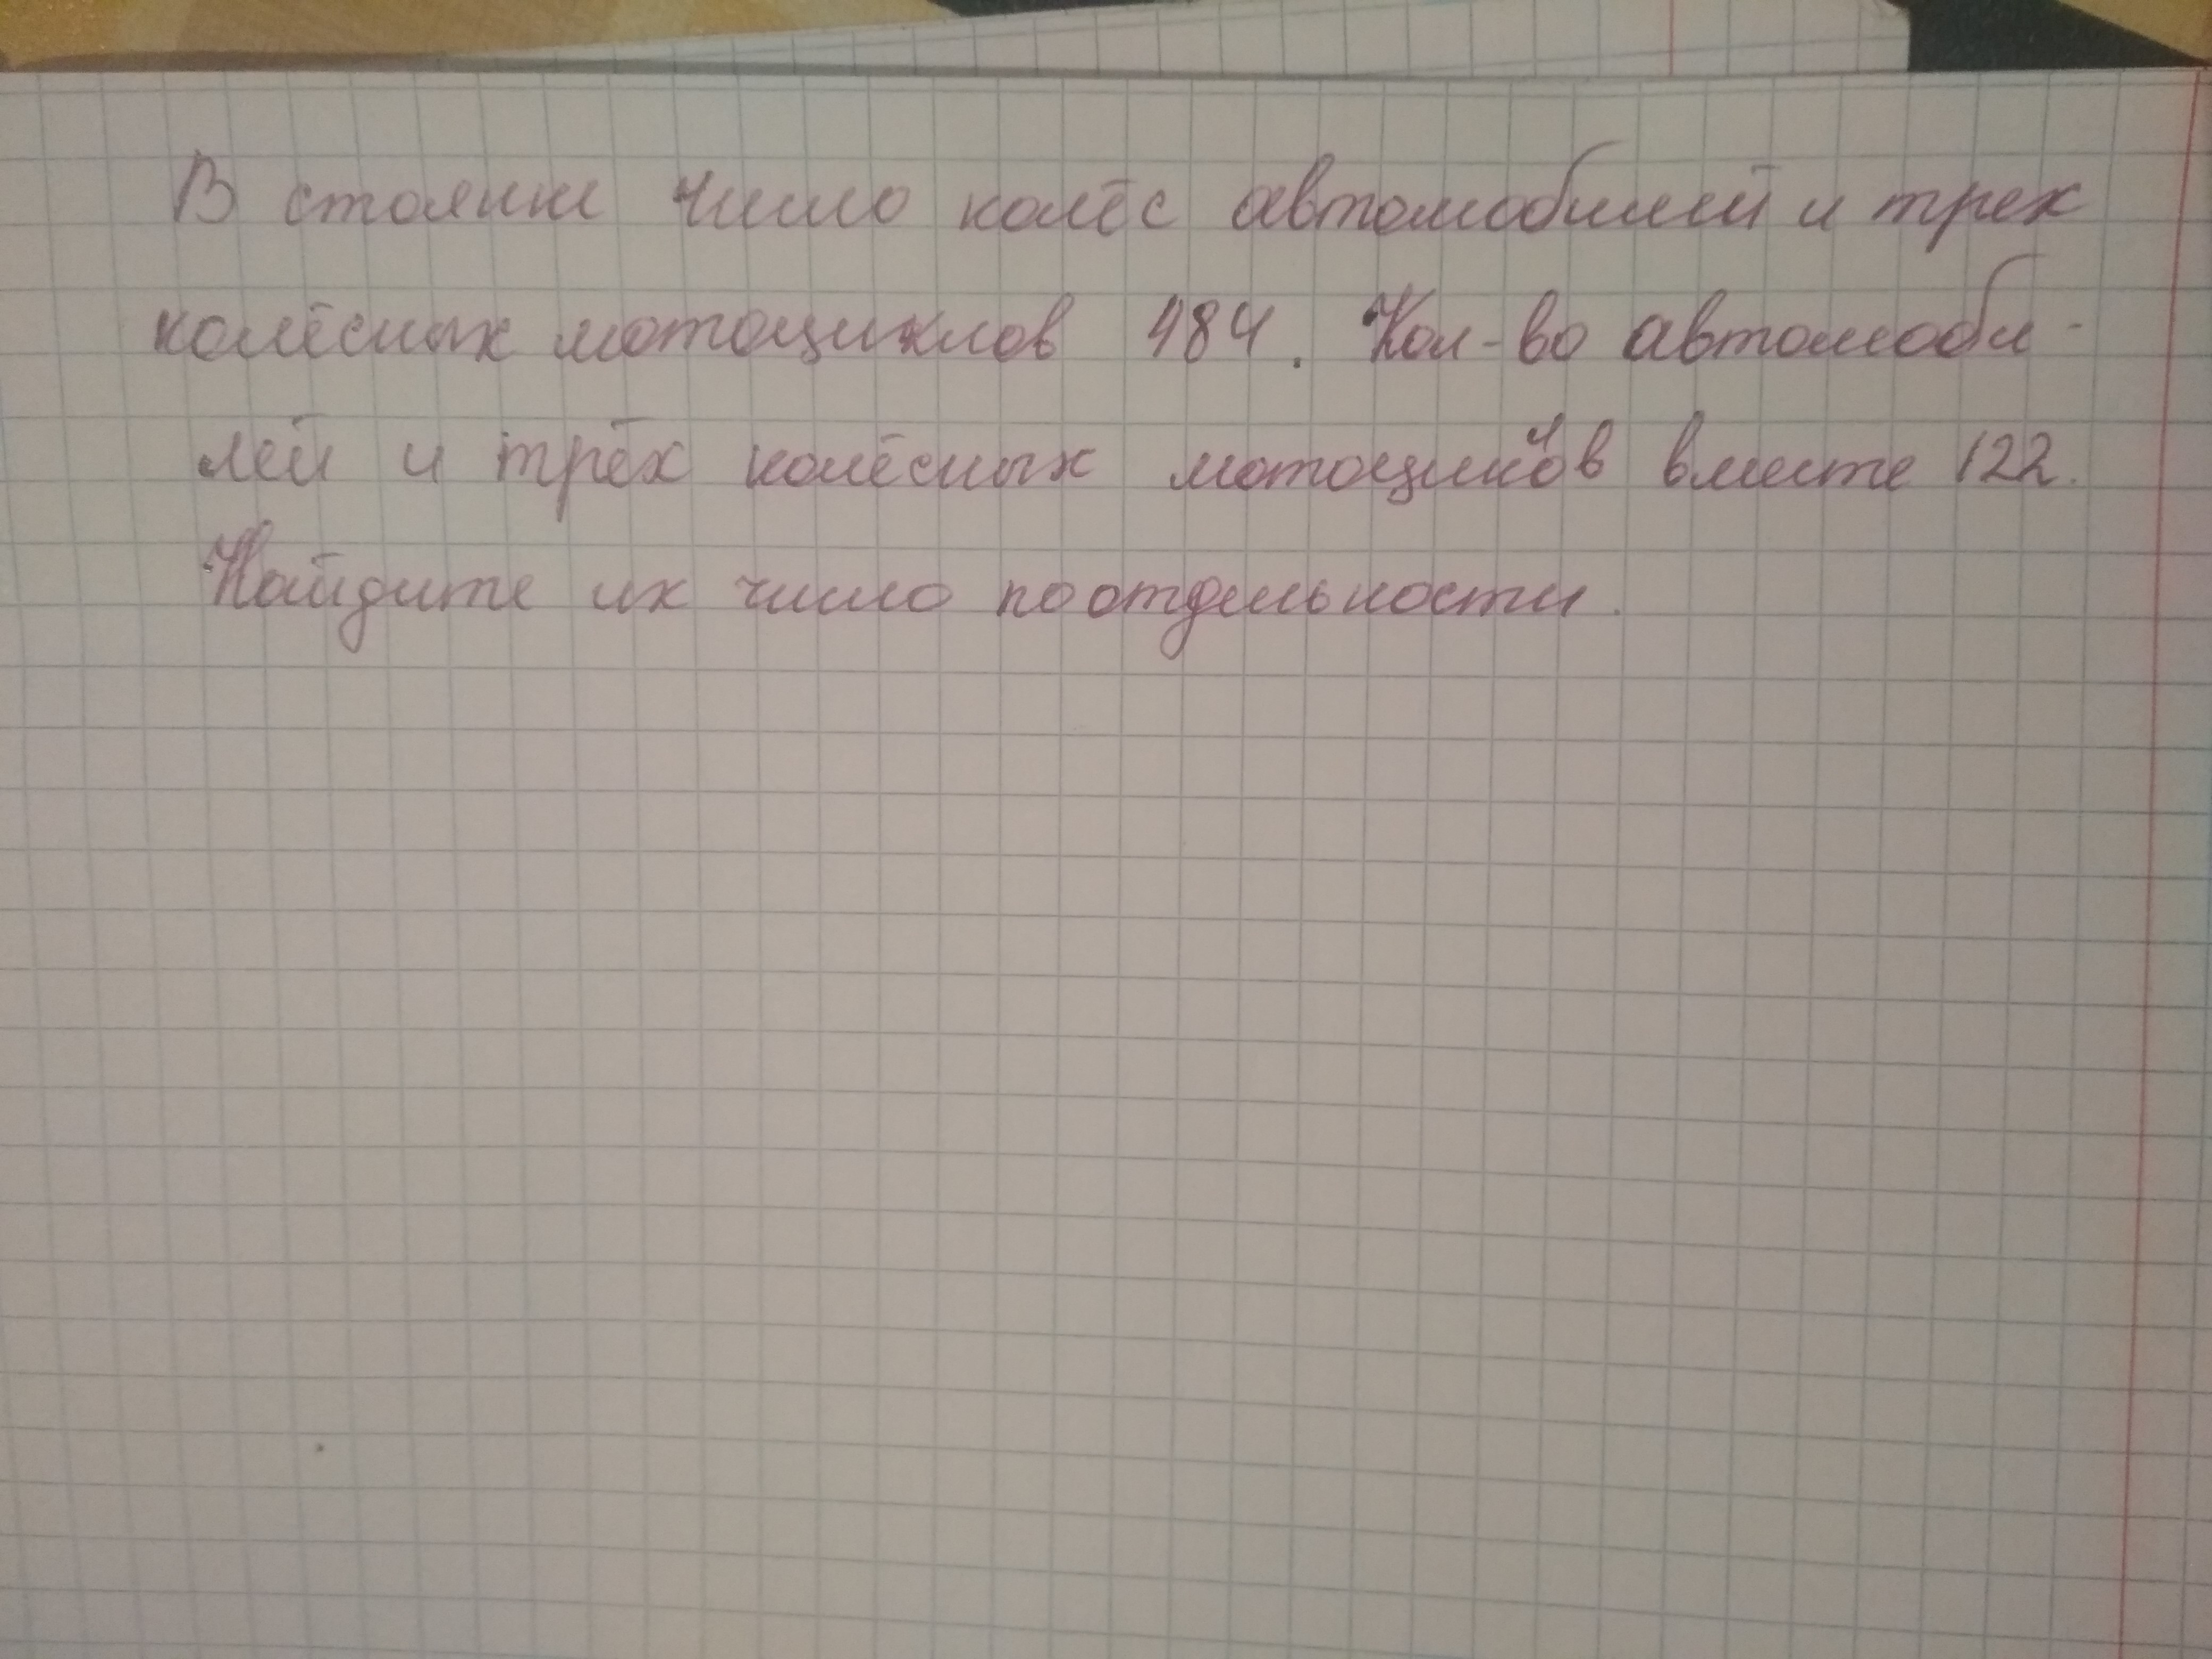 В стоянки число колёс автомобилей и трех
колёсных мотоциклов 484. Кол-во автомоби-
лей и трёх колёсных мотоциклов вместе 122.
Найдите их число поотдельности.